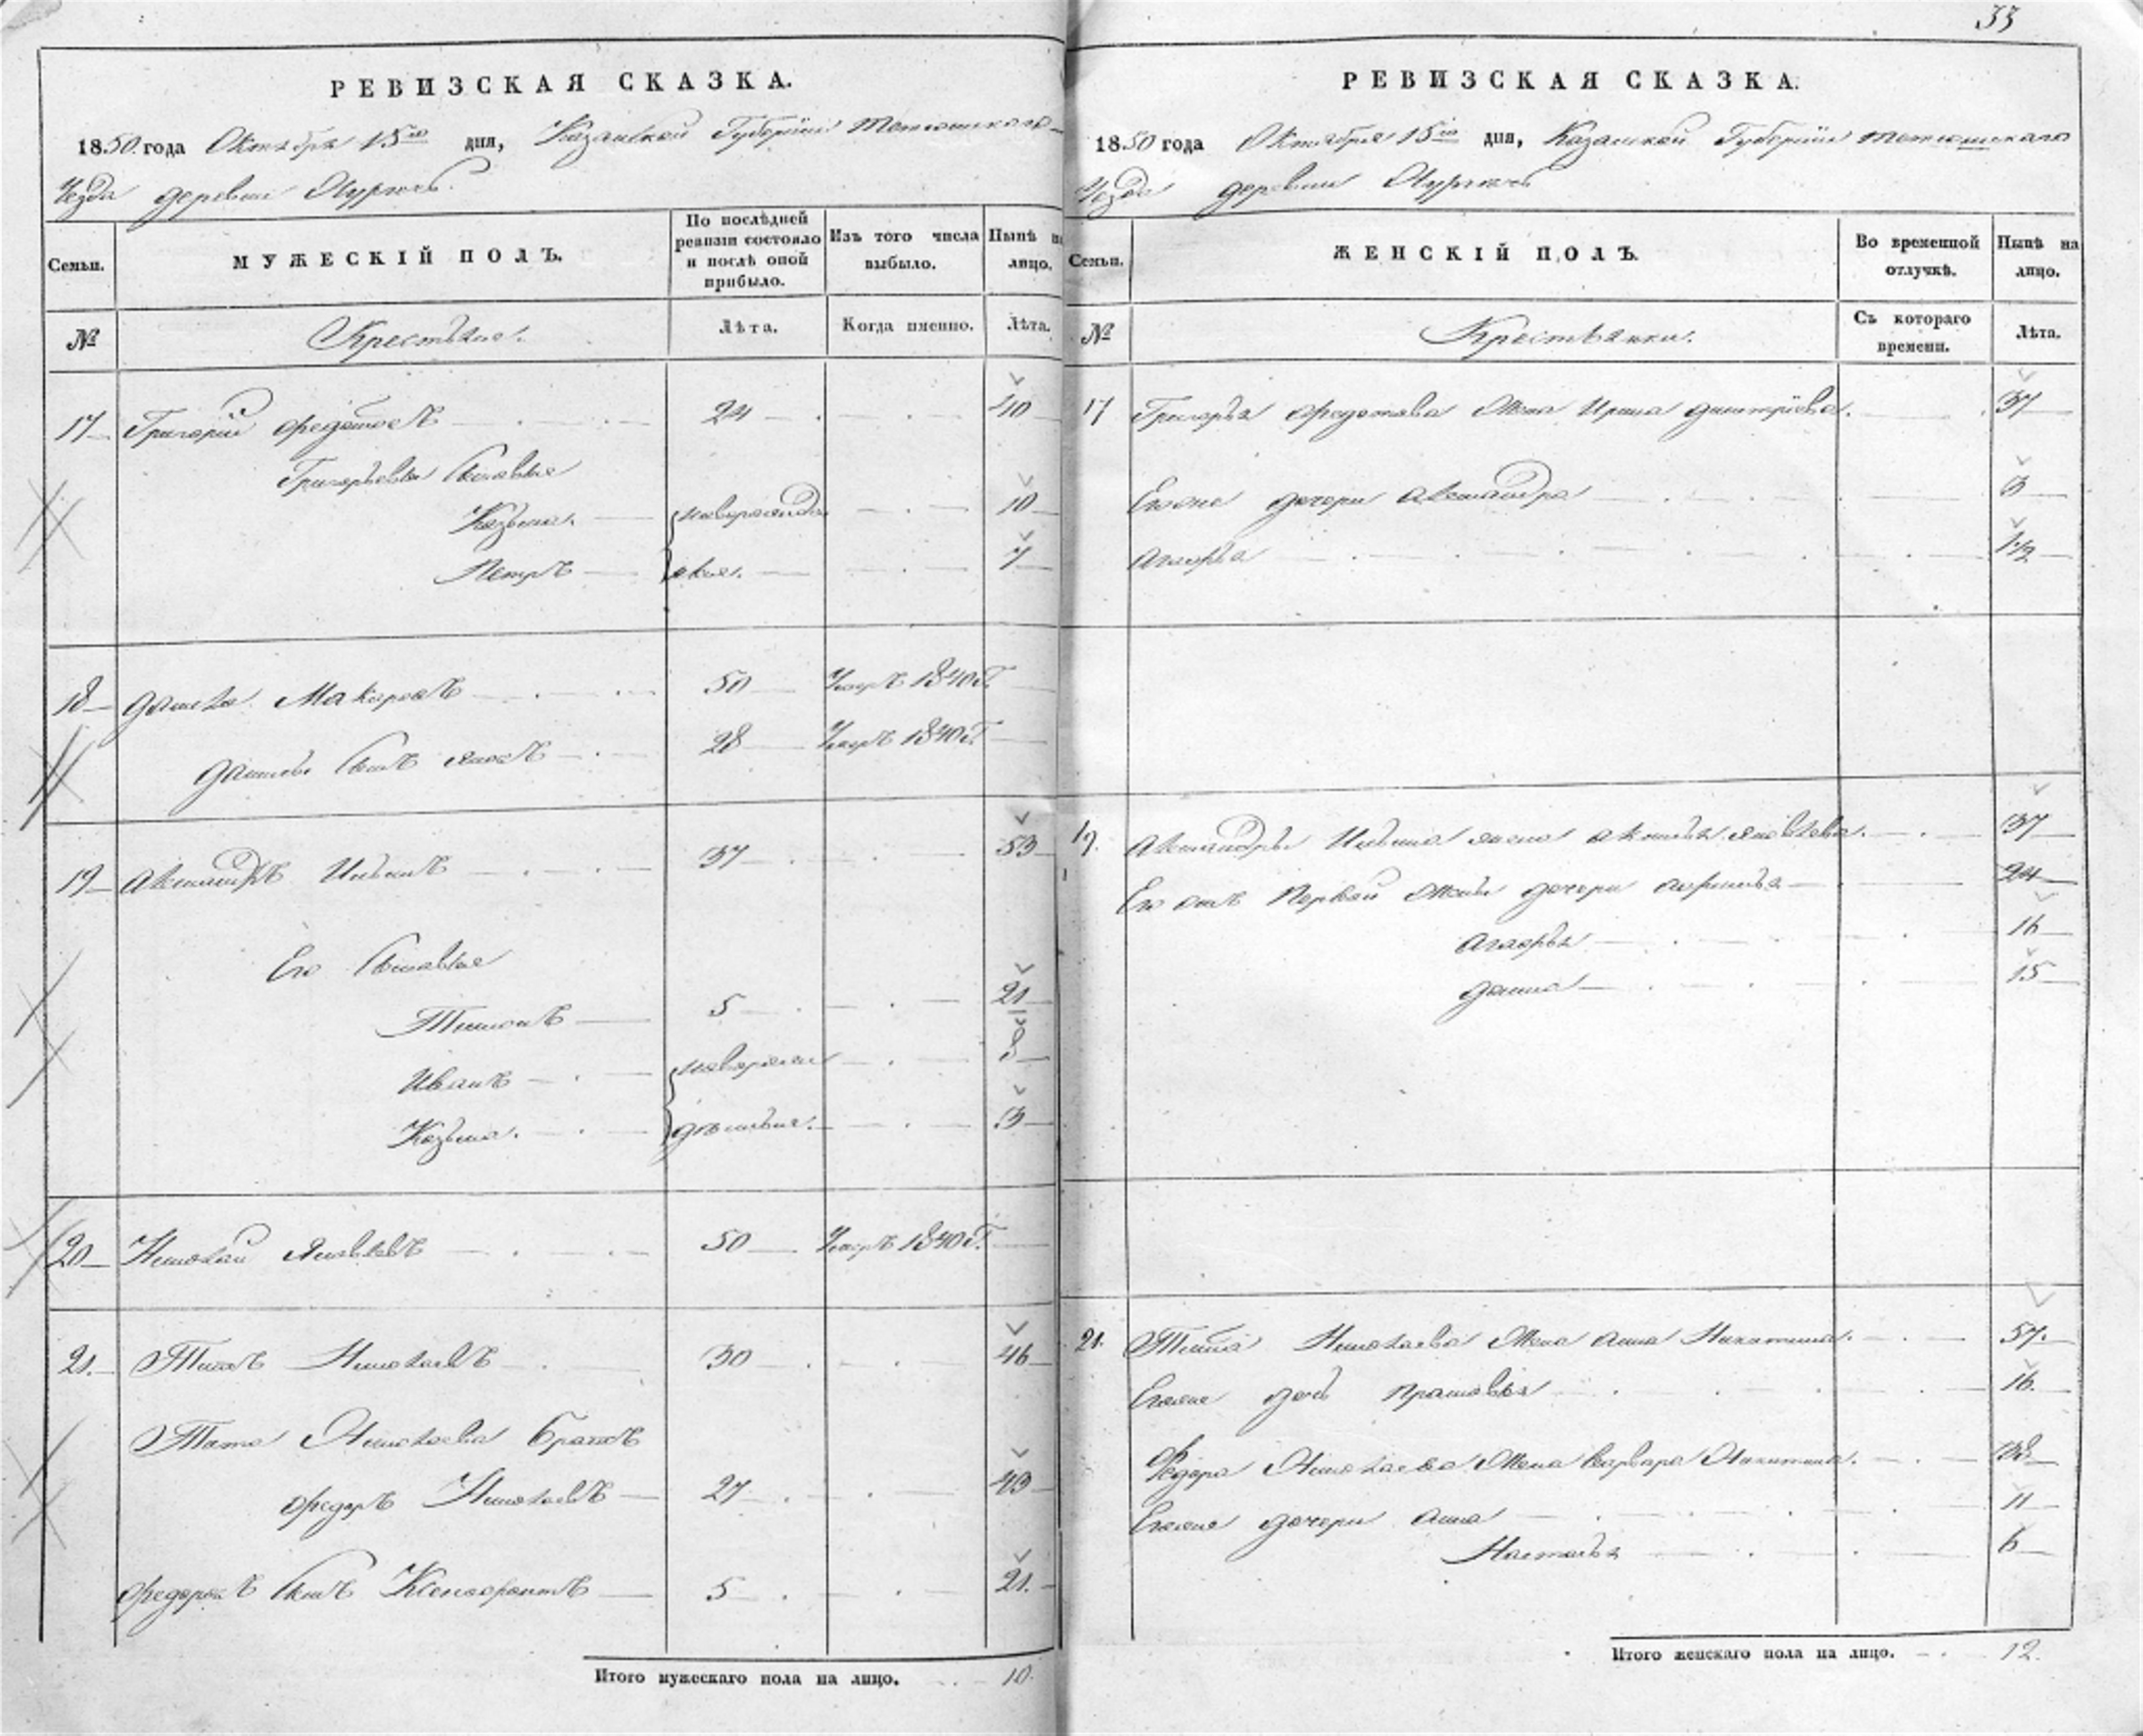 РЕВИЗСКАЯ СКАЗКА.
1850 года Октября 15го дня, Казанской Губернии Тетюшскаго
Уезда деревни
Семьи. МУЖЕСКІЙ ПОЛЪ. По послѣдней ревизіи состояло и послѣ оной прибыло. Изъ того числа выбыло. Нынѣ на лицо.
№ Крестьяне. Лѣта. Когда именно. Лѣта.
17 Григорій Федотовъ 24 40
Григорьевы Сыновья
Козьма новорожден 10
Петръ ные. 7
18 Данила Макаровъ 50 Умеръ 1840 г.
Данилы Сынъ 28 Умеръ 1840 г.
19 Александръ Ильинъ 37 53
Его Сыновья
5 21
Иванъ 8
Козьма. 3
20 Николай Яковлевъ 50 Умеръ 1840 г.
21. Титъ Николаевъ 30 46
Тита Николаева братъ
Федоръ Николаевъ 27 43
Федоровъ Сынъ Ксенофонтъ 5 21.
Итого мужескаго пола на лицо. 10.
33
РЕВИЗСКАЯ СКАЗКА.
1850 года Октября 15го дня, Казанской Губерніи Тетюшскаго
Уезда деревни
Семьи. ЖЕНСКІЙ ПОЛЪ. Во временной отлучкѣ. Нынѣ на лицо.
№ Крестьянки. Съ котораго времени. Лѣта.
17 Григорья Федотова Жена Ирина Дмитріева. 37
Егоже дочери Александра 3
Агафья 1 1/2
19. Александры Ильина жена Яковлева. 37
Его отъ Первой Жены дочери 24
Агафья 16
15
21. Тита Николаева Жена Анна Никитина. 57.
Егоже дочь Прасковья 16.
Федора Николаева Жена Варвара Никитина. 38
Егоже дочери Анна 11
Настасья 6
Итого женскаго пола на лицо. 12.